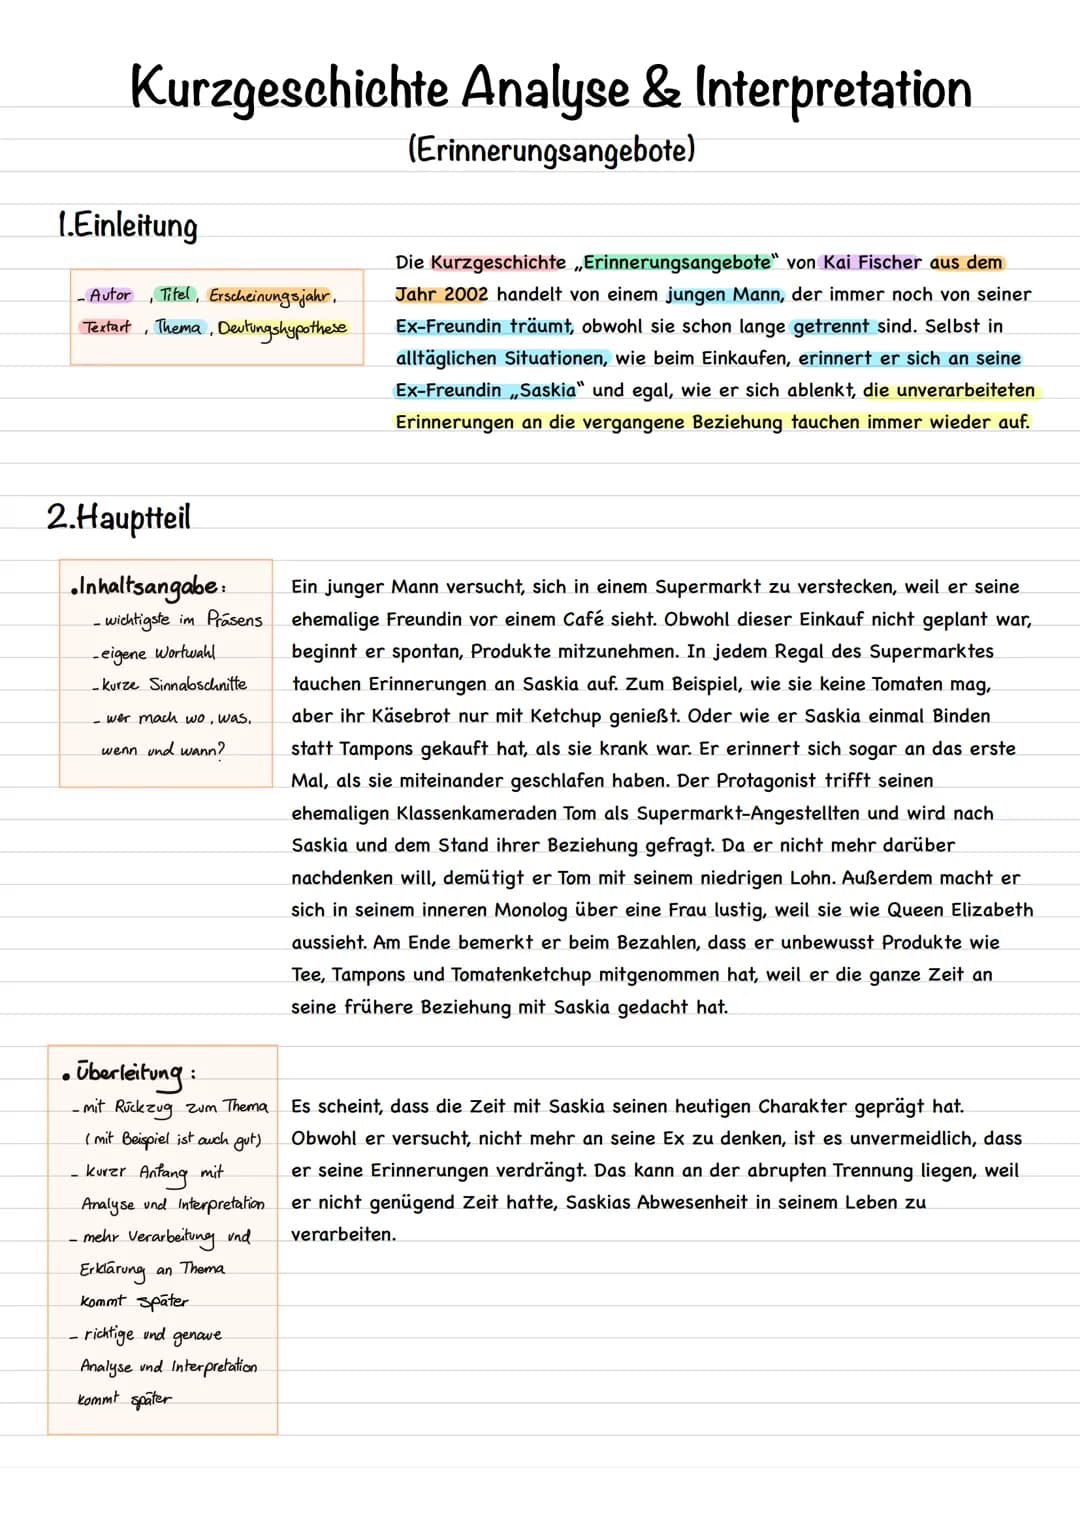 Kurzgeschichte Analyse & Interpretation
(Erinnerungsangebote)
1.Einleitung
- Autor, Titel, Erscheinungsjahr,
Textart, Thema, Deutungshypothese
Die Kurzgeschichte „Erinnerungsangebote“ von Kai Fischer aus dem
Jahr 2002 handelt von einem jungen Mann, der immer noch von seiner
Ex-Freundin träumt, obwohl sie schon lange getrennt sind. Selbst in
alltäglichen Situationen, wie beim Einkaufen, erinnert er sich an seine
Ex-Freundin „Saskia“ und egal, wie er sich ablenkt, die unverarbeiteten
Erinnerungen an die vergangene Beziehung tauchen immer wieder auf.
2.Hauptteil
•Inhaltsangabe:
- wichtigste im Präsens
- eigene Wortwahl
- kurze Sinnabschnitte
- wer mach wo, was,
wenn und wann?
Ein junger Mann versucht, sich in einem Supermarkt zu verstecken, weil er seine
ehemalige Freundin vor einem Café sieht. Obwohl dieser Einkauf nicht geplant war,
beginnt er spontan, Produkte mitzunehmen. In jedem Regal des Supermarktes
tauchen Erinnerungen an Saskia auf. Zum Beispiel, wie sie keine Tomaten mag,
aber ihr Käsebrot nur mit Ketchup genießt. Oder wie er Saskia einmal Binden
statt Tampons gekauft hat, als sie krank war. Er erinnert sich sogar an das erste
Mal, als sie miteinander geschlafen haben. Der Protagonist trifft seinen
ehemaligen Klassenkameraden Tom als Supermarkt-Angestellten und wird nach
Saskia und dem Stand ihrer Beziehung gefragt. Da er nicht mehr darüber
nachdenken will, demütigt er Tom mit seinem niedrigen Lohn. Außerdem macht er
sich in seinem inneren Monolog über eine Frau lustig, weil sie wie Queen Elizabeth
aussieht. Am Ende bemerkt er beim Bezahlen, dass er unbewusst Produkte wie
Tee, Tampons und Tomatenketchup mitgenommen hat, weil er die ganze Zeit an
seine frühere Beziehung mit Saskia gedacht hat.
• Überleitung:
- mit Rückzug zum Thema
(mit Beispiel ist auch gut)
- kurzr Anfang mit
Analyse und Interpretation
- mehr Verarbeitung und
Erklärung an Thema
kommt später
- richtige und genaue
Analyse und Interpretation
kommt später
Es scheint, dass die Zeit mit Saskia seinen heutigen Charakter geprägt hat.
Obwohl er versucht, nicht mehr an seine Ex zu denken, ist es unvermeidlich, dass
er seine Erinnerungen verdrängt. Das kann an der abrupten Trennung liegen, weil
er nicht genügend Zeit hatte, Saskias Abwesenheit in seinem Leben zu
verarbeiten.